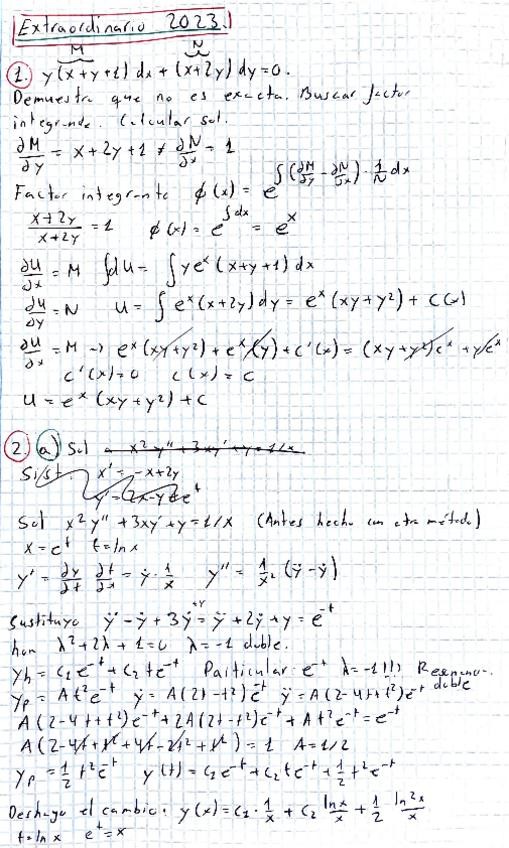 Extraordinario 2023.
M N
1. y(x+y+1) dx + (x+2y) dy = 0.
Demuestra que no es exacta. Buscar factor
integrante. Calcular sol.
∂M/∂y = x+2y+1 ≠ ∂N/∂x = 1
Factor integrante φ(x) = e^∫(∂M/∂y - ∂N/∂x)·1/N dx
(x+2y)/(x+2y) = 1 φ(x) = e^∫dx = e^x
∂U/∂x = M ∫dU = ∫ye^x (x+y+1) dx
∂U/∂y = N U = ∫e^x(x+2y) dy = e^x (xy+y²) + C(x)
∂U/∂x = M → e^x(xy+y²) + e^x(y) + c'(x) = (xy+y²)e^x + ye^x
c'(x)=0 c(x)=c
U = e^x (xy+y²) + c
2. a) Sol x²y'' + 3xy' + y = 1/x
Sist. x' = -x+2y
y' = 2x-y+e^t
Sol x²y'' + 3xy' + y = 1/x (Antes hecho con otro método)
x = e^t t = ln x
y' = ∂y/∂t ∂t/∂x = ẏ · 1/x y'' = 1/x² (ÿ - ẏ)
Sustituyo ÿ - ẏ + 3ẏ +y = ÿ + 2ẏ + y = e^-t
hom λ²+2λ+1=0 λ=-1 doble.
yh = c1e^-t + c2te^-t Particular e^-t λ=-1!!! Resonan.
doble
yp = At²e^-t ẏ = A(2t-t²)e^-t ÿ = A(2-4t+t²)e^-t
A(2-4t+t²)e^-t + 2A(2t-t²)e^-t + At²e^-t = e^-t
A(2-4t+t²+4t-2t²+t²) = 1 A=1/2
yp = 1/2 t²e^-t y(t) = c1e^-t + c2te^-t + 1/2 t²e^-t
Deshago el cambio. y(x) = c1 · 1/x + c2 lnx/x + 1/2 ln²x/x
t = ln x e^t = x